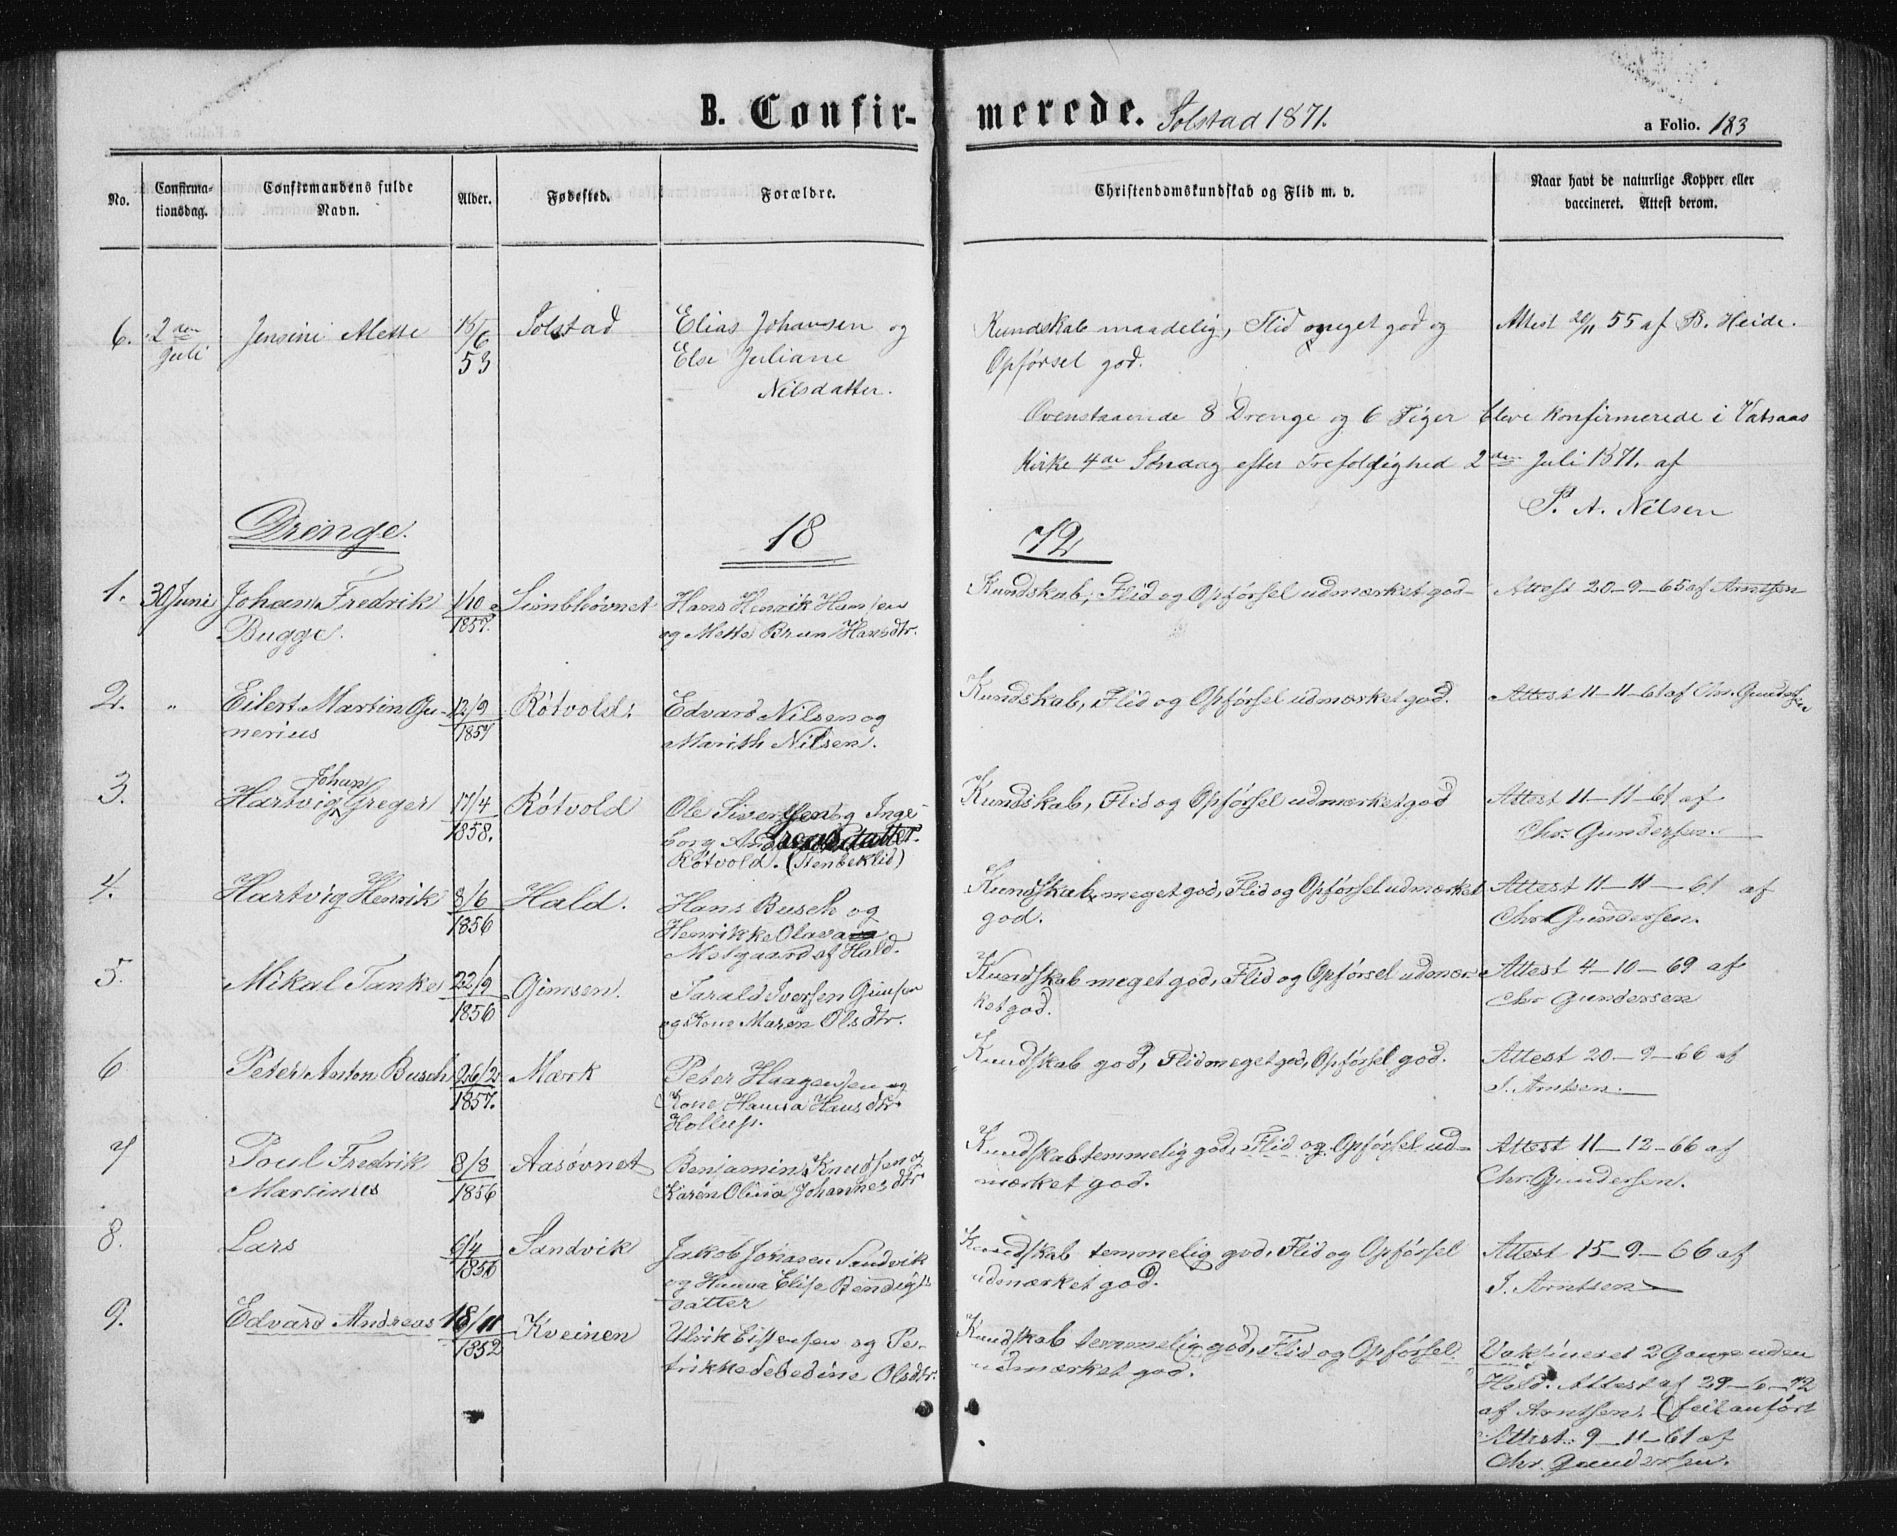 B. Confirmerede. Solstad 1871. a Folio. 183
No. Confirmationsdag. Confirmandens fulde Navn. Alder. Fødested. Forældre. Christendomskundskab og Flid m. v. Naar havt de naturlige Kopper eller vaccineret. Attest derom.
6. 2den Juli Jensine Mette 15/6 53 Solstad Elias Johansen og Kundskab maadelig, Flid meget god og Attest 20/11 55 af B. Heide.
Else Juliane Opførsel god.
Nilsdatter.
Ovenstaaende 8 Drenge og 6 Piger bleve konfirmerede i Vatsaas
Kirke 4de Søndag efter Trefoldighed 2den Juli 1871. af
P. A. Nilsen
Drenge. 18 72
1. 30 Juni Johan Fredrik 1/10 Simbhøvnet Hans Henrik Hansen Kundskab, Flid og Opførsel udmærket god Attest 20-9-65 af Arntsen
Bugge. 1857. og Mette Brun Hansdtr.
2. " Eilert Martin Gu- 12/9 Røtvold. Edvard Nilsen og Kundskab, Flid og Opførsel udmærket god. Attest 11-11-61 af Chr. Gundersen
nerius 1857 Marith Nilsen.
3. Hartvig Johan Greger 17/4 Røtvold Ole Sivertsen og Inge- Kundskab, Flid og Opførsel udmærket god Attest 11-11-61 af
1858. borg Andreasdatter. Chr. Gundersen.
Røtvold. (Stenseklid)
4. Hartvig Henrik 8/6 Hald. Hans Busch og Kundskab meget god, Flid og Opførsel udmærket Attest 11-11-61 af
1856 Henrikke Olava god. Chr Gundersen.
Molgaard af Hald.
5. Mikal Tanke 22/9 Gimsen. Tarald Iversen Gimsen Kundskab meget god, Flid og Opførsel udmær- Attest 4-10-69 af
1856 og Kone Maren Olsdtr. ket god. Chr Gundersen
6 Peter Anton Busch 26/2 Mærk Peter Haagensen og Kundskab god, Flid meget god, Opførsel god. Attest 20-9-66 af
1857. Kone Hanna Hansdtr J. Arntsen.
Hollup.
7 Poul Fredrik 8/8 Aasøvnet Benjamin Knudsen og Kundskab temmelig god, Flid og Opførsel ud- Attest 11-12-66 af
Martinus 1856 Karen Olina Johannesdtr mærket god. Chr. Gundersen.
8. Lars 6/4 Sandvik Jakob Johnsen Sandvik Kundskab temmelig god, Flid og Opførsel Attest 15-9-66 af
1856 og Hanna Elise Bendigt- udmærket god. J. Arntsen
datter
9. Edvard Andreas 18/11 Kveinen Ulrik Eistensen og Pe- Kundskab temmelig god, Flid og Opførsel Vaksineret 2 Gange uden
1852 trikke Olsdtr. udmærket god. Held. Attest af 29-6-72
af Arntsen. (feil anført
Attest: 9-11-61 af
Chr. Gundersen.